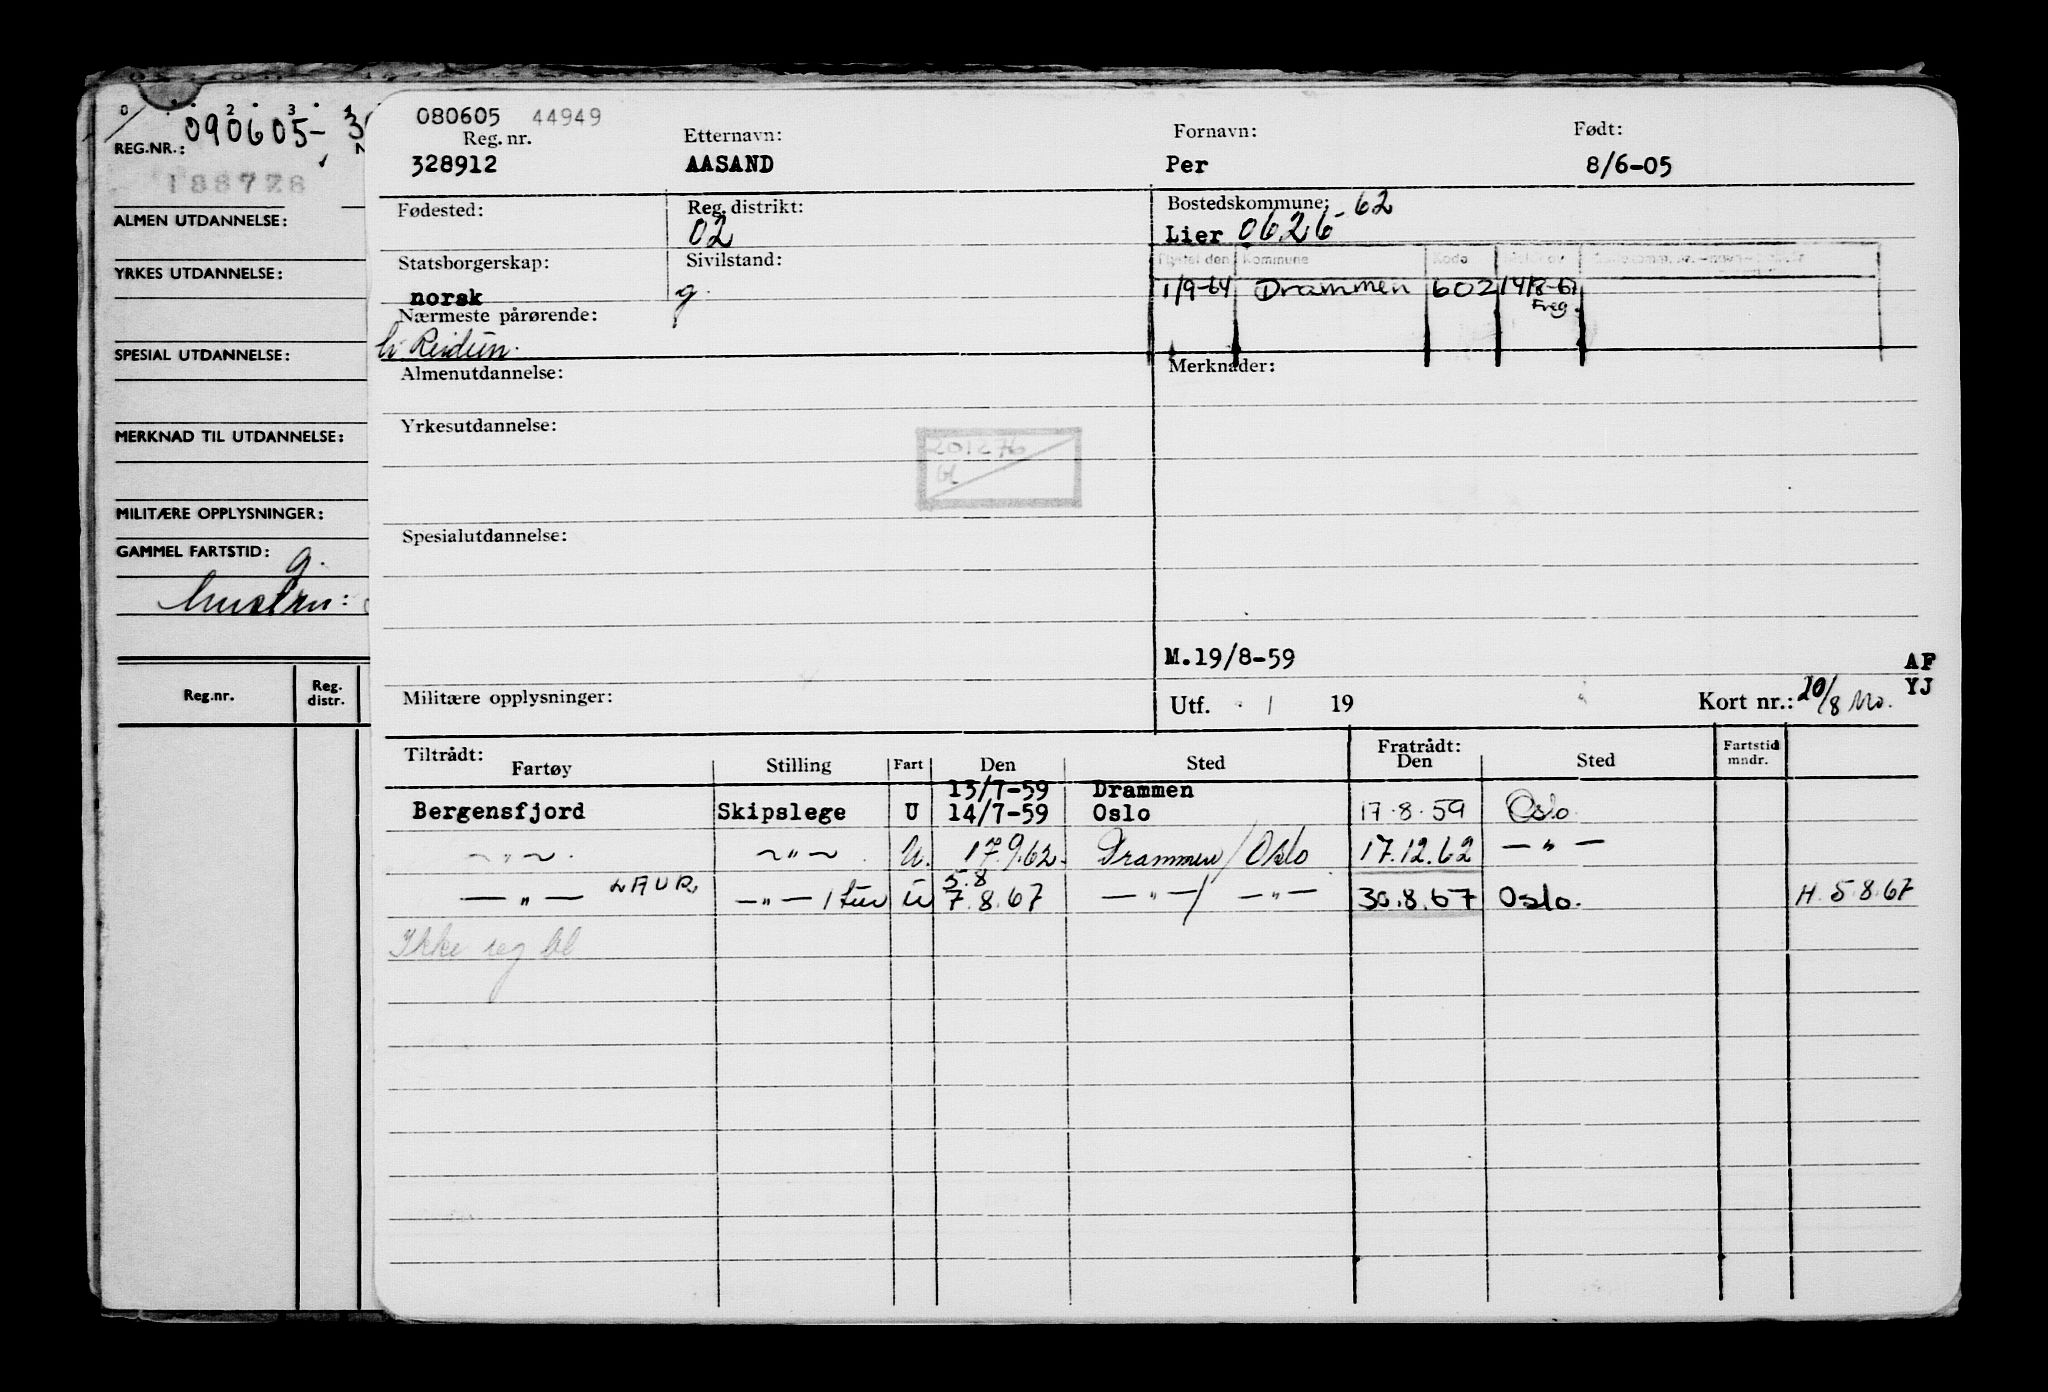 090605-
REG.NR.:
188728
ALMEN UTDANNELSE:
YRKES UTDANNELSE:
SPESIAL UTDANNELSE:
MERKNAD TIL UTDANNELSE:
MILITÆRE OPPLYSNINGER:
GAMMEL FARTSTID:
g.
hustru:
Reg.nr. Reg. distr.
080605 44949
Reg. nr. Etternavn: Fornavn: Født:
328912 AASAND Per 8/6-05
Fødested: Reg. distrikt: Bostedskommune: 62
02 Lier 0626
Statsborgerskap: Sivilstand: Kommune Kode
norsk g. 1/9-64 Drammen 602 14/8-67
Freg.
Nærmeste pårørende:
h. Reidun.
Almenutdannelse: Merknader:
Yrkesutdannelse:
201276
Spesialutdannelse:
M.19/8-59
AF
YJ
Militære opplysninger: Utf. / 19 Kort nr.: 20/8 Mo.
Tiltrådt: Fratrådt:
Fartøy Stilling Fart Den Sted Den Sted Fartstid mndr.
13/7-59 Drammen
Bergensfjord Skipslege U 14/7-59 Oslo 17.8.59 Oslo.
— " — . — " — . U. 17.9.62. Drammen/Oslo 17.12.62 — " —
5.8
— " — LAUR. — " — 1 tur U 7.8.67 — " — / — " — 30.8.67 Oslo. H. 5.8.67
Ikke reg bl